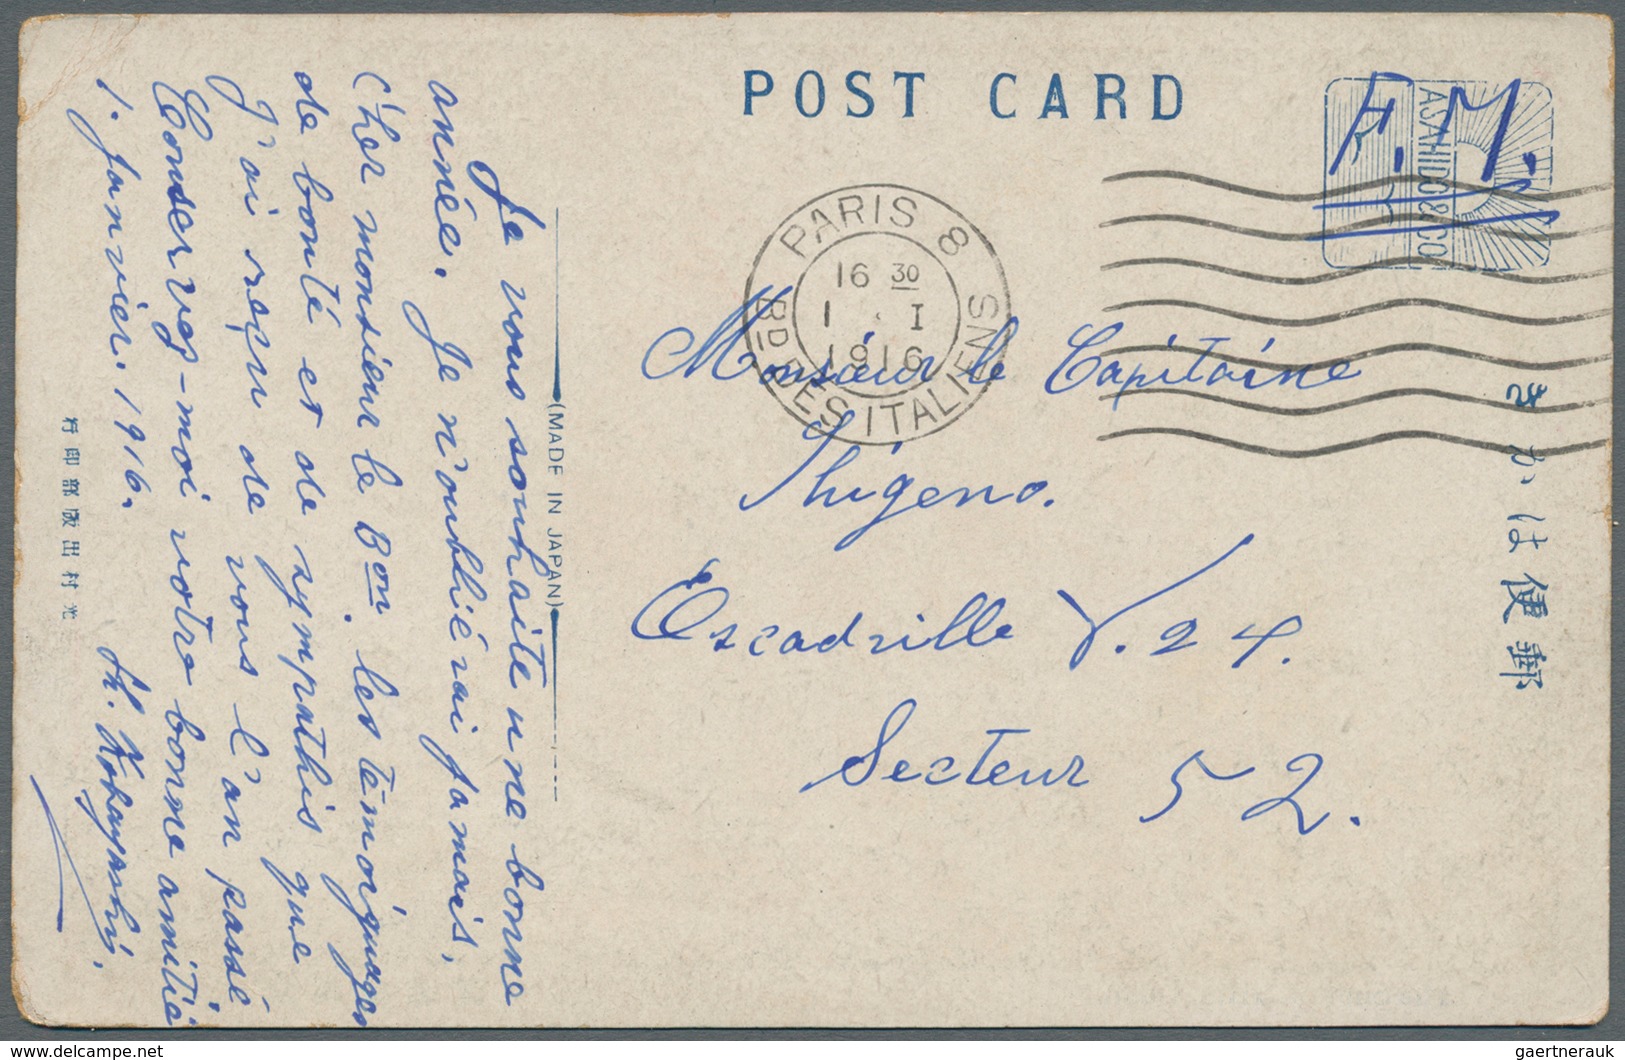 POST CARD
F. M.
ASAHIDO & CO
PARIS 8
16 30
1 . I
1916
BD DES ITALIENS
Monsieur le Capitaine
Shigeno.
Escadrille V. 24.
Secteur 52.
きかは便郵
(MADE IN JAPAN)
Je vous souhaite une bonne
année. Je n'oublié rai jamais,
cher monsieur le Bon. les témoignages
de bonté et de sympathis que
J'ai reçu de vous l'an passé
Conservez-moi votre bonne amitié
1. Janvier. 1916.
Sh. Kobayashi.
行印部版出村光
gaertnerauk